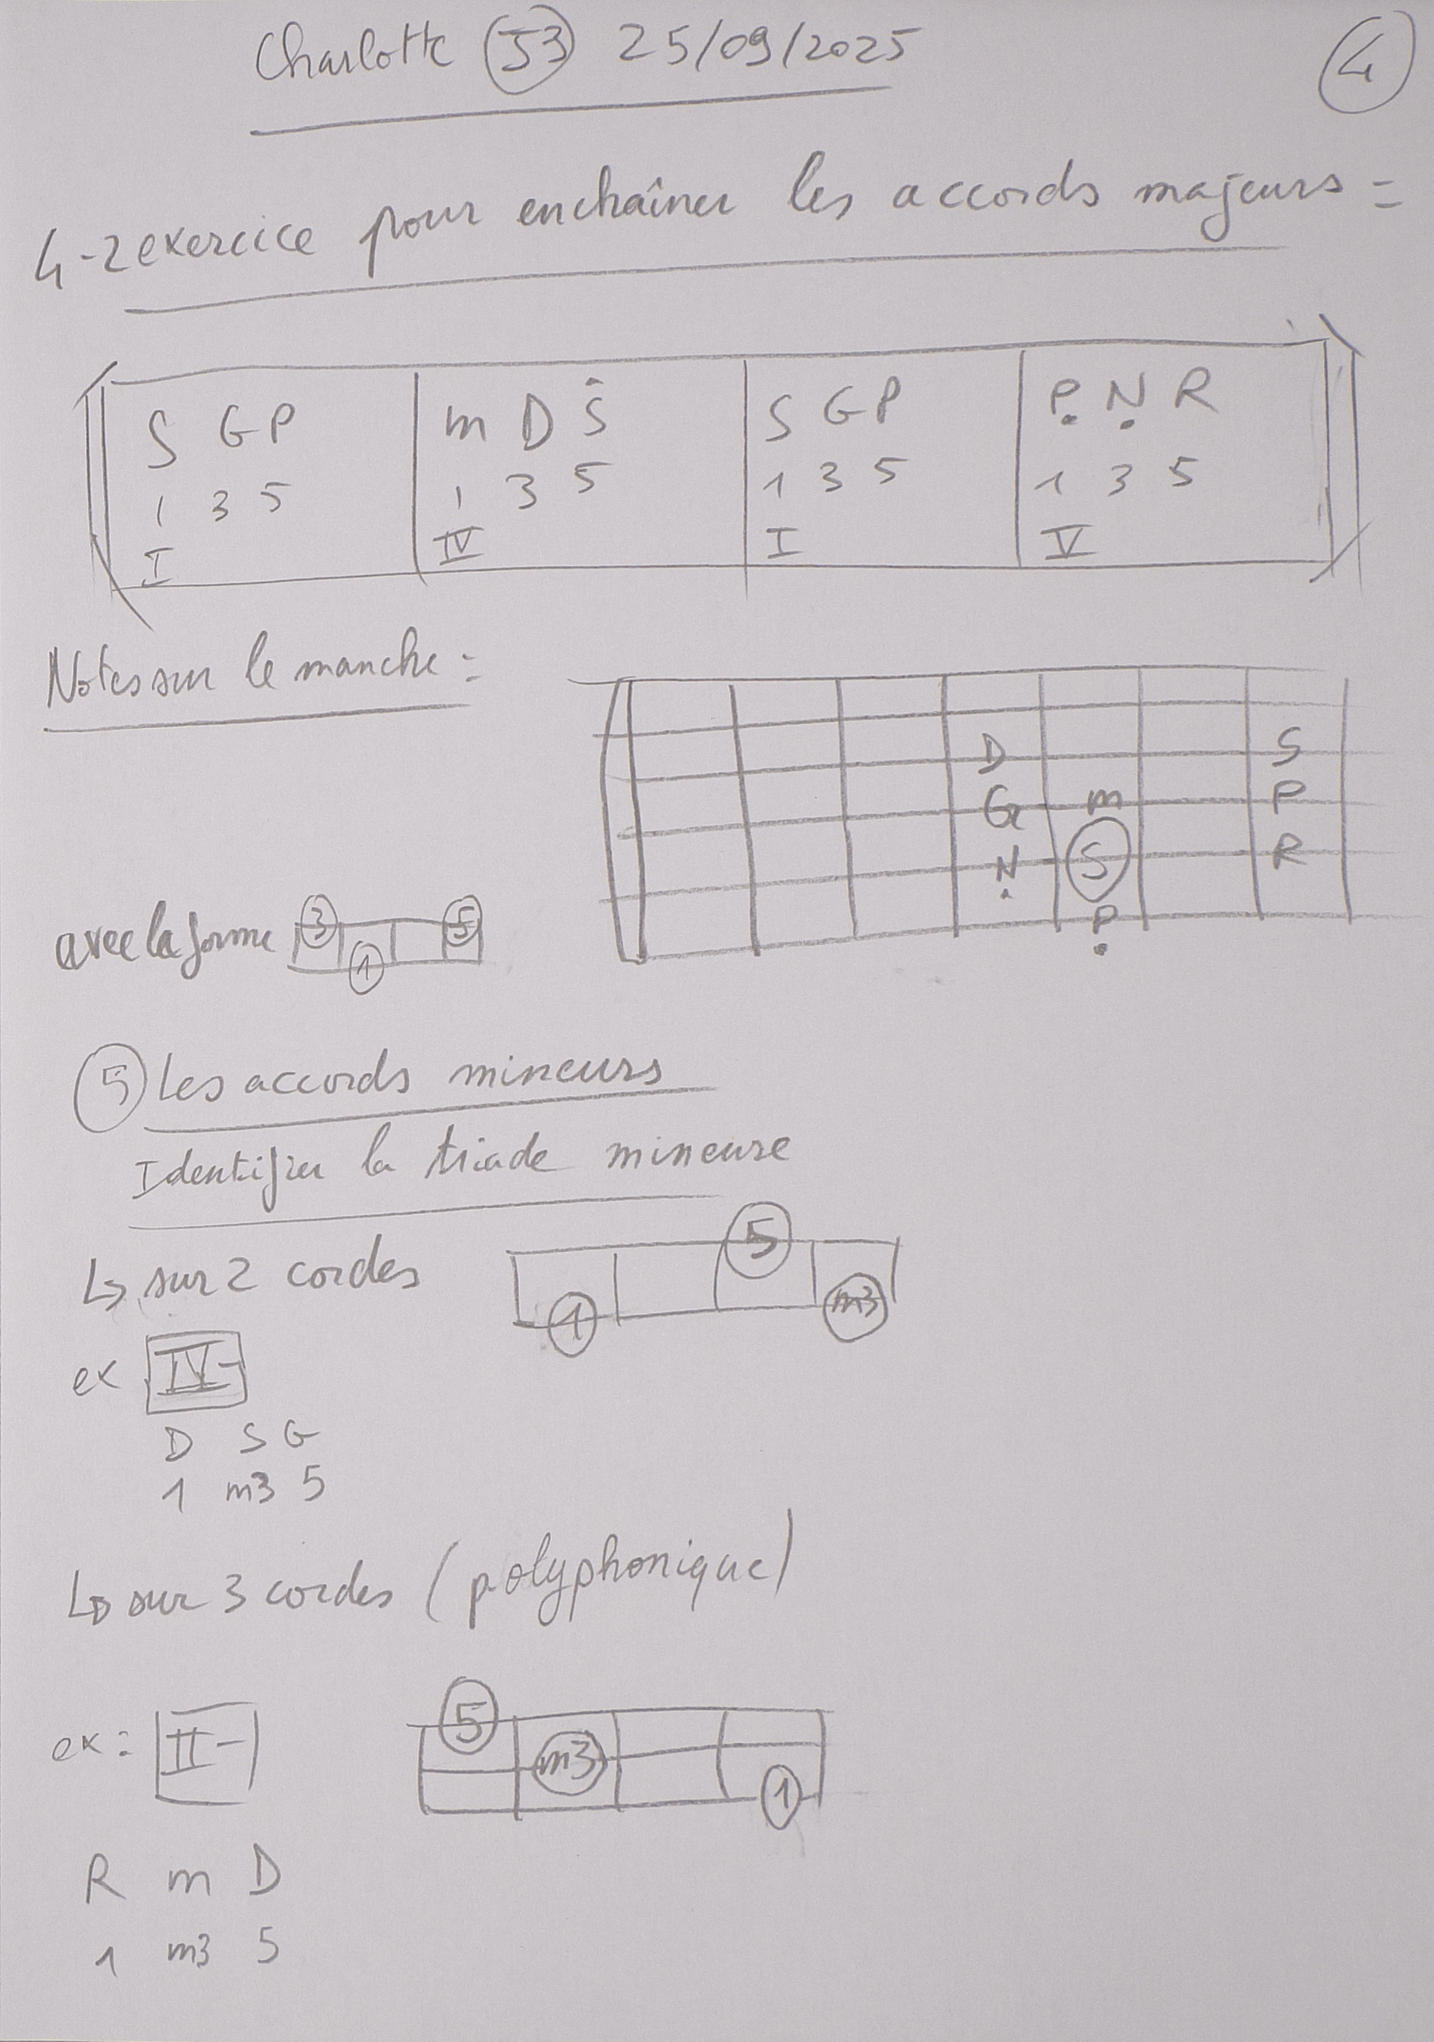 Charlotte J3 25/09/2025 4
4-2 exercice pour enchaîner les accords majeurs =
S G P m D Ṡ S G P P̣ Ṇ R
1 3 5 1 3 5 1 3 5 1 3 5
I IV I V
Notes sur le manche =
D S
G m P
Ṇ S R
P̣
avec la forme 3 5
1
5 Les accords mineurs
Identifier la triade mineure
↳ sur 2 cordes 5
1 m3
ex IV-
D S G
1 m3 5
↳ sur 3 cordes (polyphonique)
5
ex = II- m3
1
R m D
1 m3 5